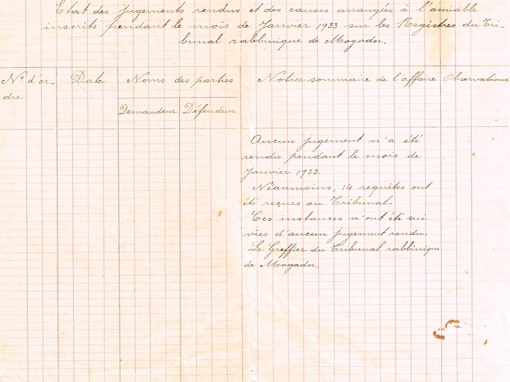 Etat des jugements rendus et des causes arrangées à l'amiable
inscrits pendant le mois de Janvier 1933 sur les Registres du Tri-
bunal rabbinique de Mogador.
N° d'or-
dre
Date
Noms des parties
Demandeur Défendeur
Notice sommaire de l'affaire
Observations
Aucun jugement n'a été
rendu pendant le mois de
Janvier 1933.
Néanmoins, 14 requêtes ont
été reçues au Tribunal.
Ces instances n'ont été sui-
vies d'aucun jugement rendu.
Le Greffier du Tribunal rabbinique
de Mogador,